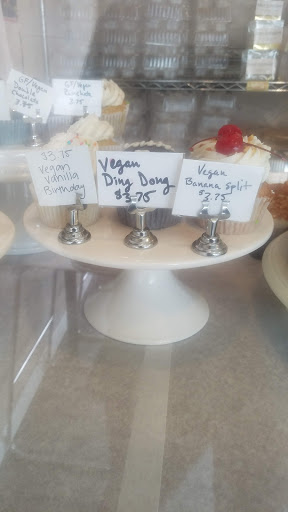 GF/Vegan
Double
Chocolate
3.75
GF/Vegan
$3.75
Vegan
Vanilla
Birthday
Vegan
Ding Dong
$3.75
Vegan
Banana Split
$3.75